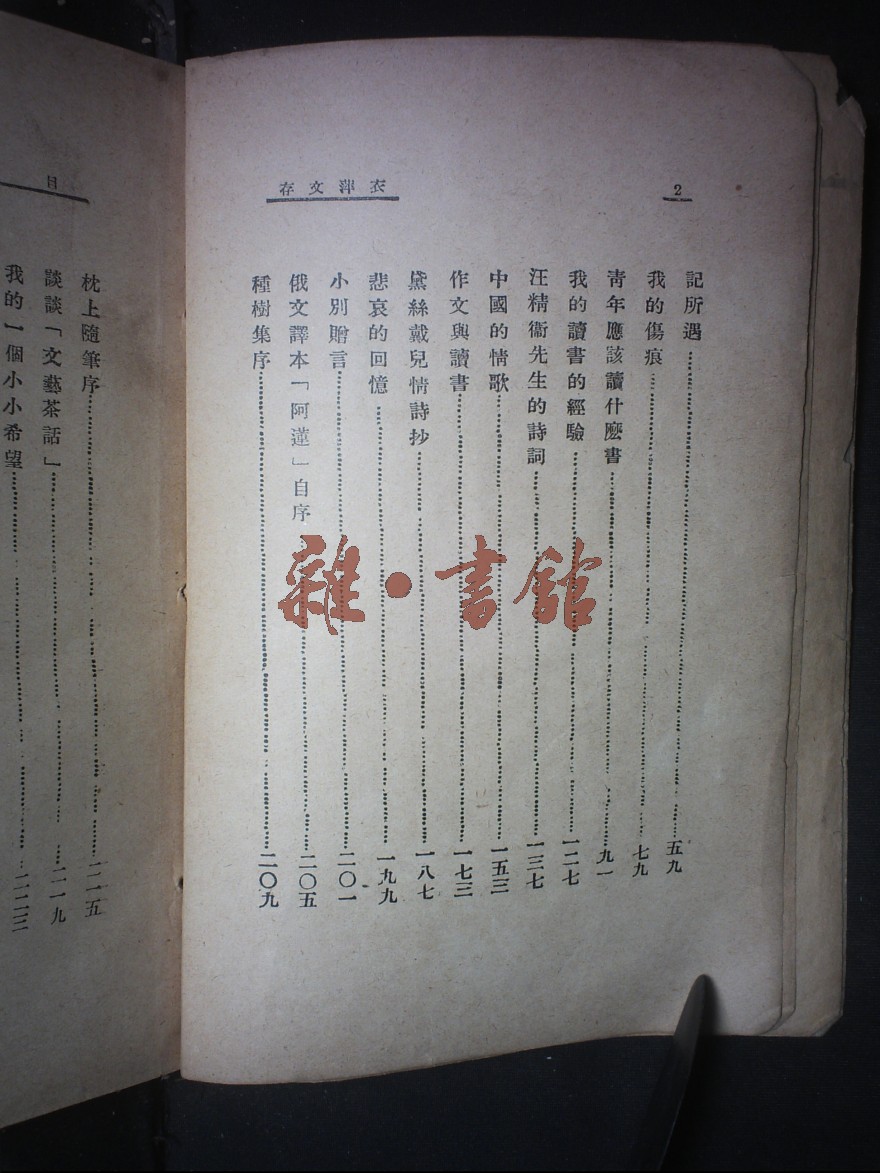 2
衣萍文存
記所遇……五九
我的傷痕……七九
青年應該讀什麼書……九一
我的讀書的經驗……一二七
汪精衞先生的詩詞……一三七
中國的情歌……一五三
作文與讀書……一七三
黛絲戴兒情詩抄……一八七
悲哀的回憶……一九九
小別贈言……二〇一
俄文譯本「阿蓮」自序……二〇五
種樹集序……二〇九
目
枕上隨筆序……二一五
談談「文藝茶話」……二一九
我的一個小小希望……二二三
雜·書館